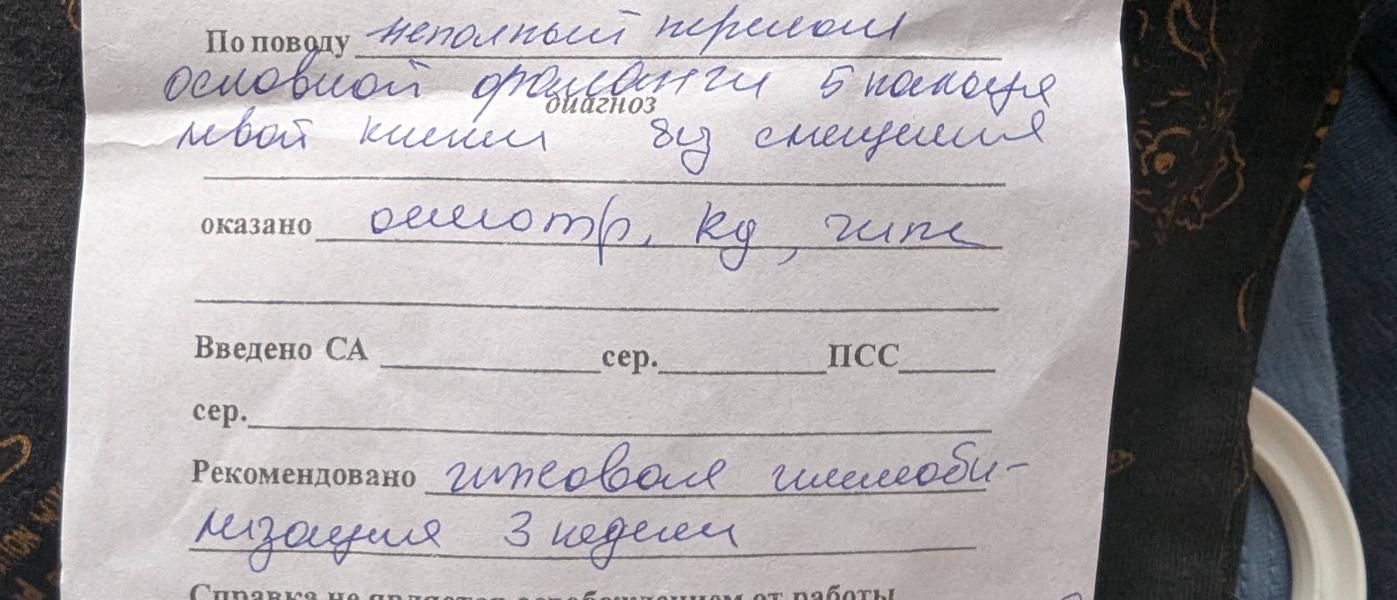 По поводу неполный перелом
основной фаланги 5 пальца
диагноз
левой кисти без смещения
оказано осмотр, Rg, гипс
Введено СА сер. ПСС
сер.
Рекомендовано гипсовая иммоби-
лизация 3 недели
Справка не является освобождением от работы